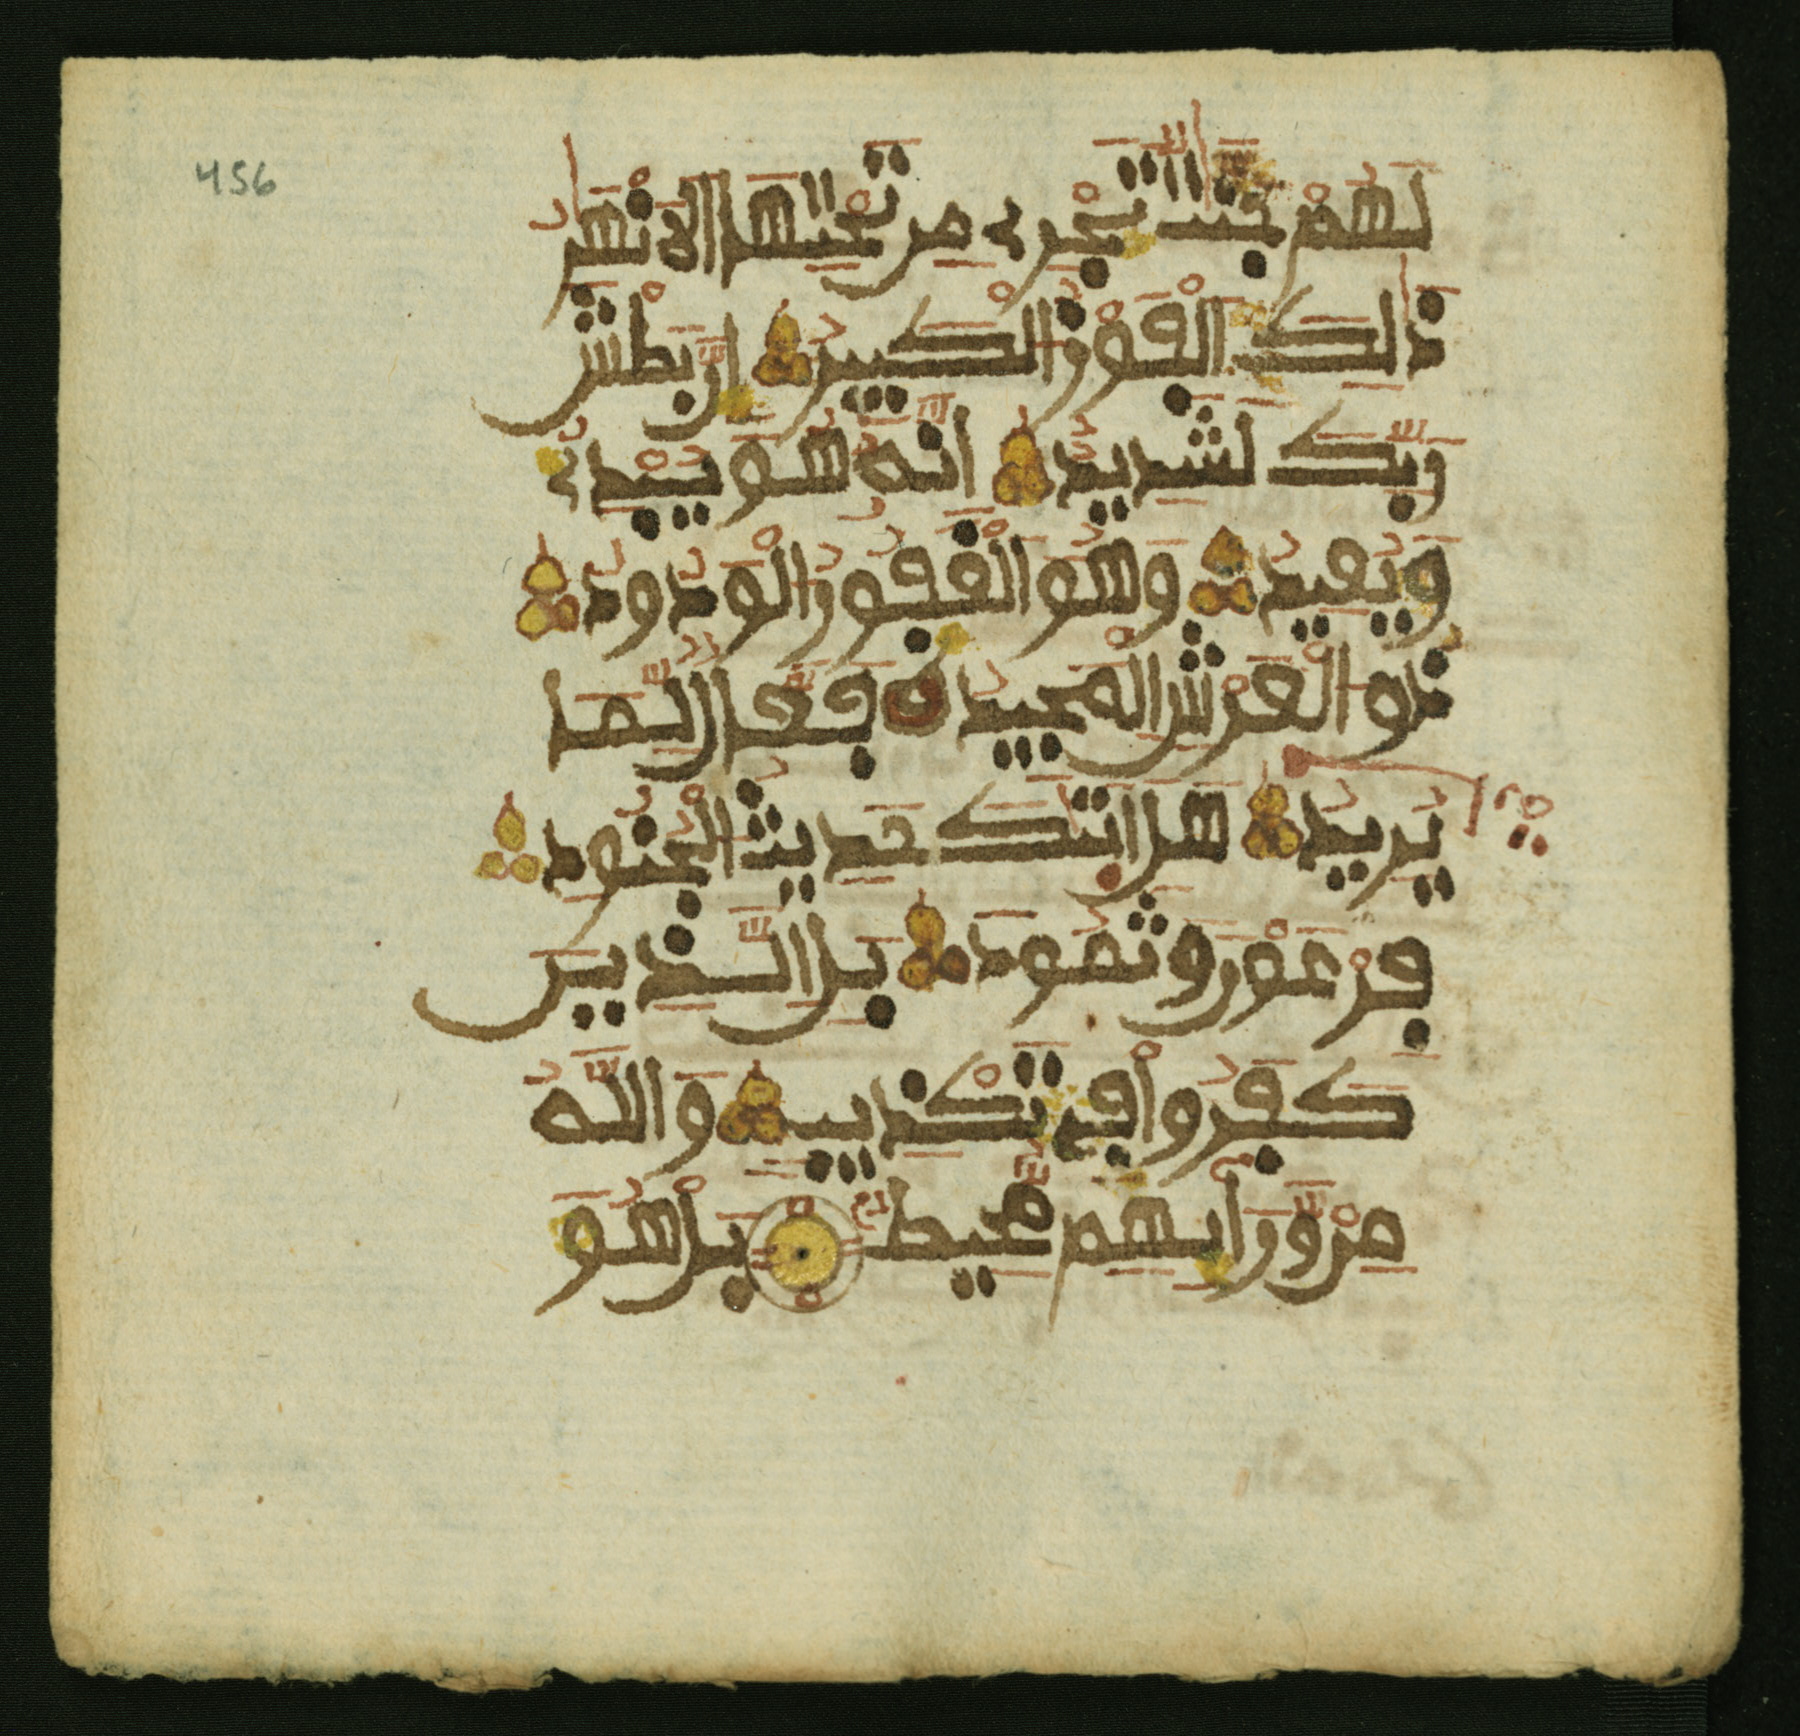 456
لَهُمْ جَنَّٰتٌ تَجْرِي مِن تَحْتِهَا الْأَنْهَٰرُ
ذَٰلِكَ الْفَوْزُ الْكَبِيرُ إِنَّ بَطْشَ
رَبِّكَ لَشَدِيدٌ إِنَّهُ هُوَ يُبْدِئُ
وَيُعِيدُ وَهُوَ الْغَفُورُ الْوَدُودُ
ذُو الْعَرْشِ الْمَجِيدُ فَعَّالٌ لِّمَا
يُرِيدُ هَلْ أَتَىٰكَ حَدِيثُ الْجُنُودِ
فِرْعَوْنَ وَثَمُودَ بَلِ الَّذِينَ
كَفَرُوا فِي تَكْذِيبٍ وَاللَّهُ
مِن وَرَائِهِم مُّحِيطٌ بَلْ هُوَ